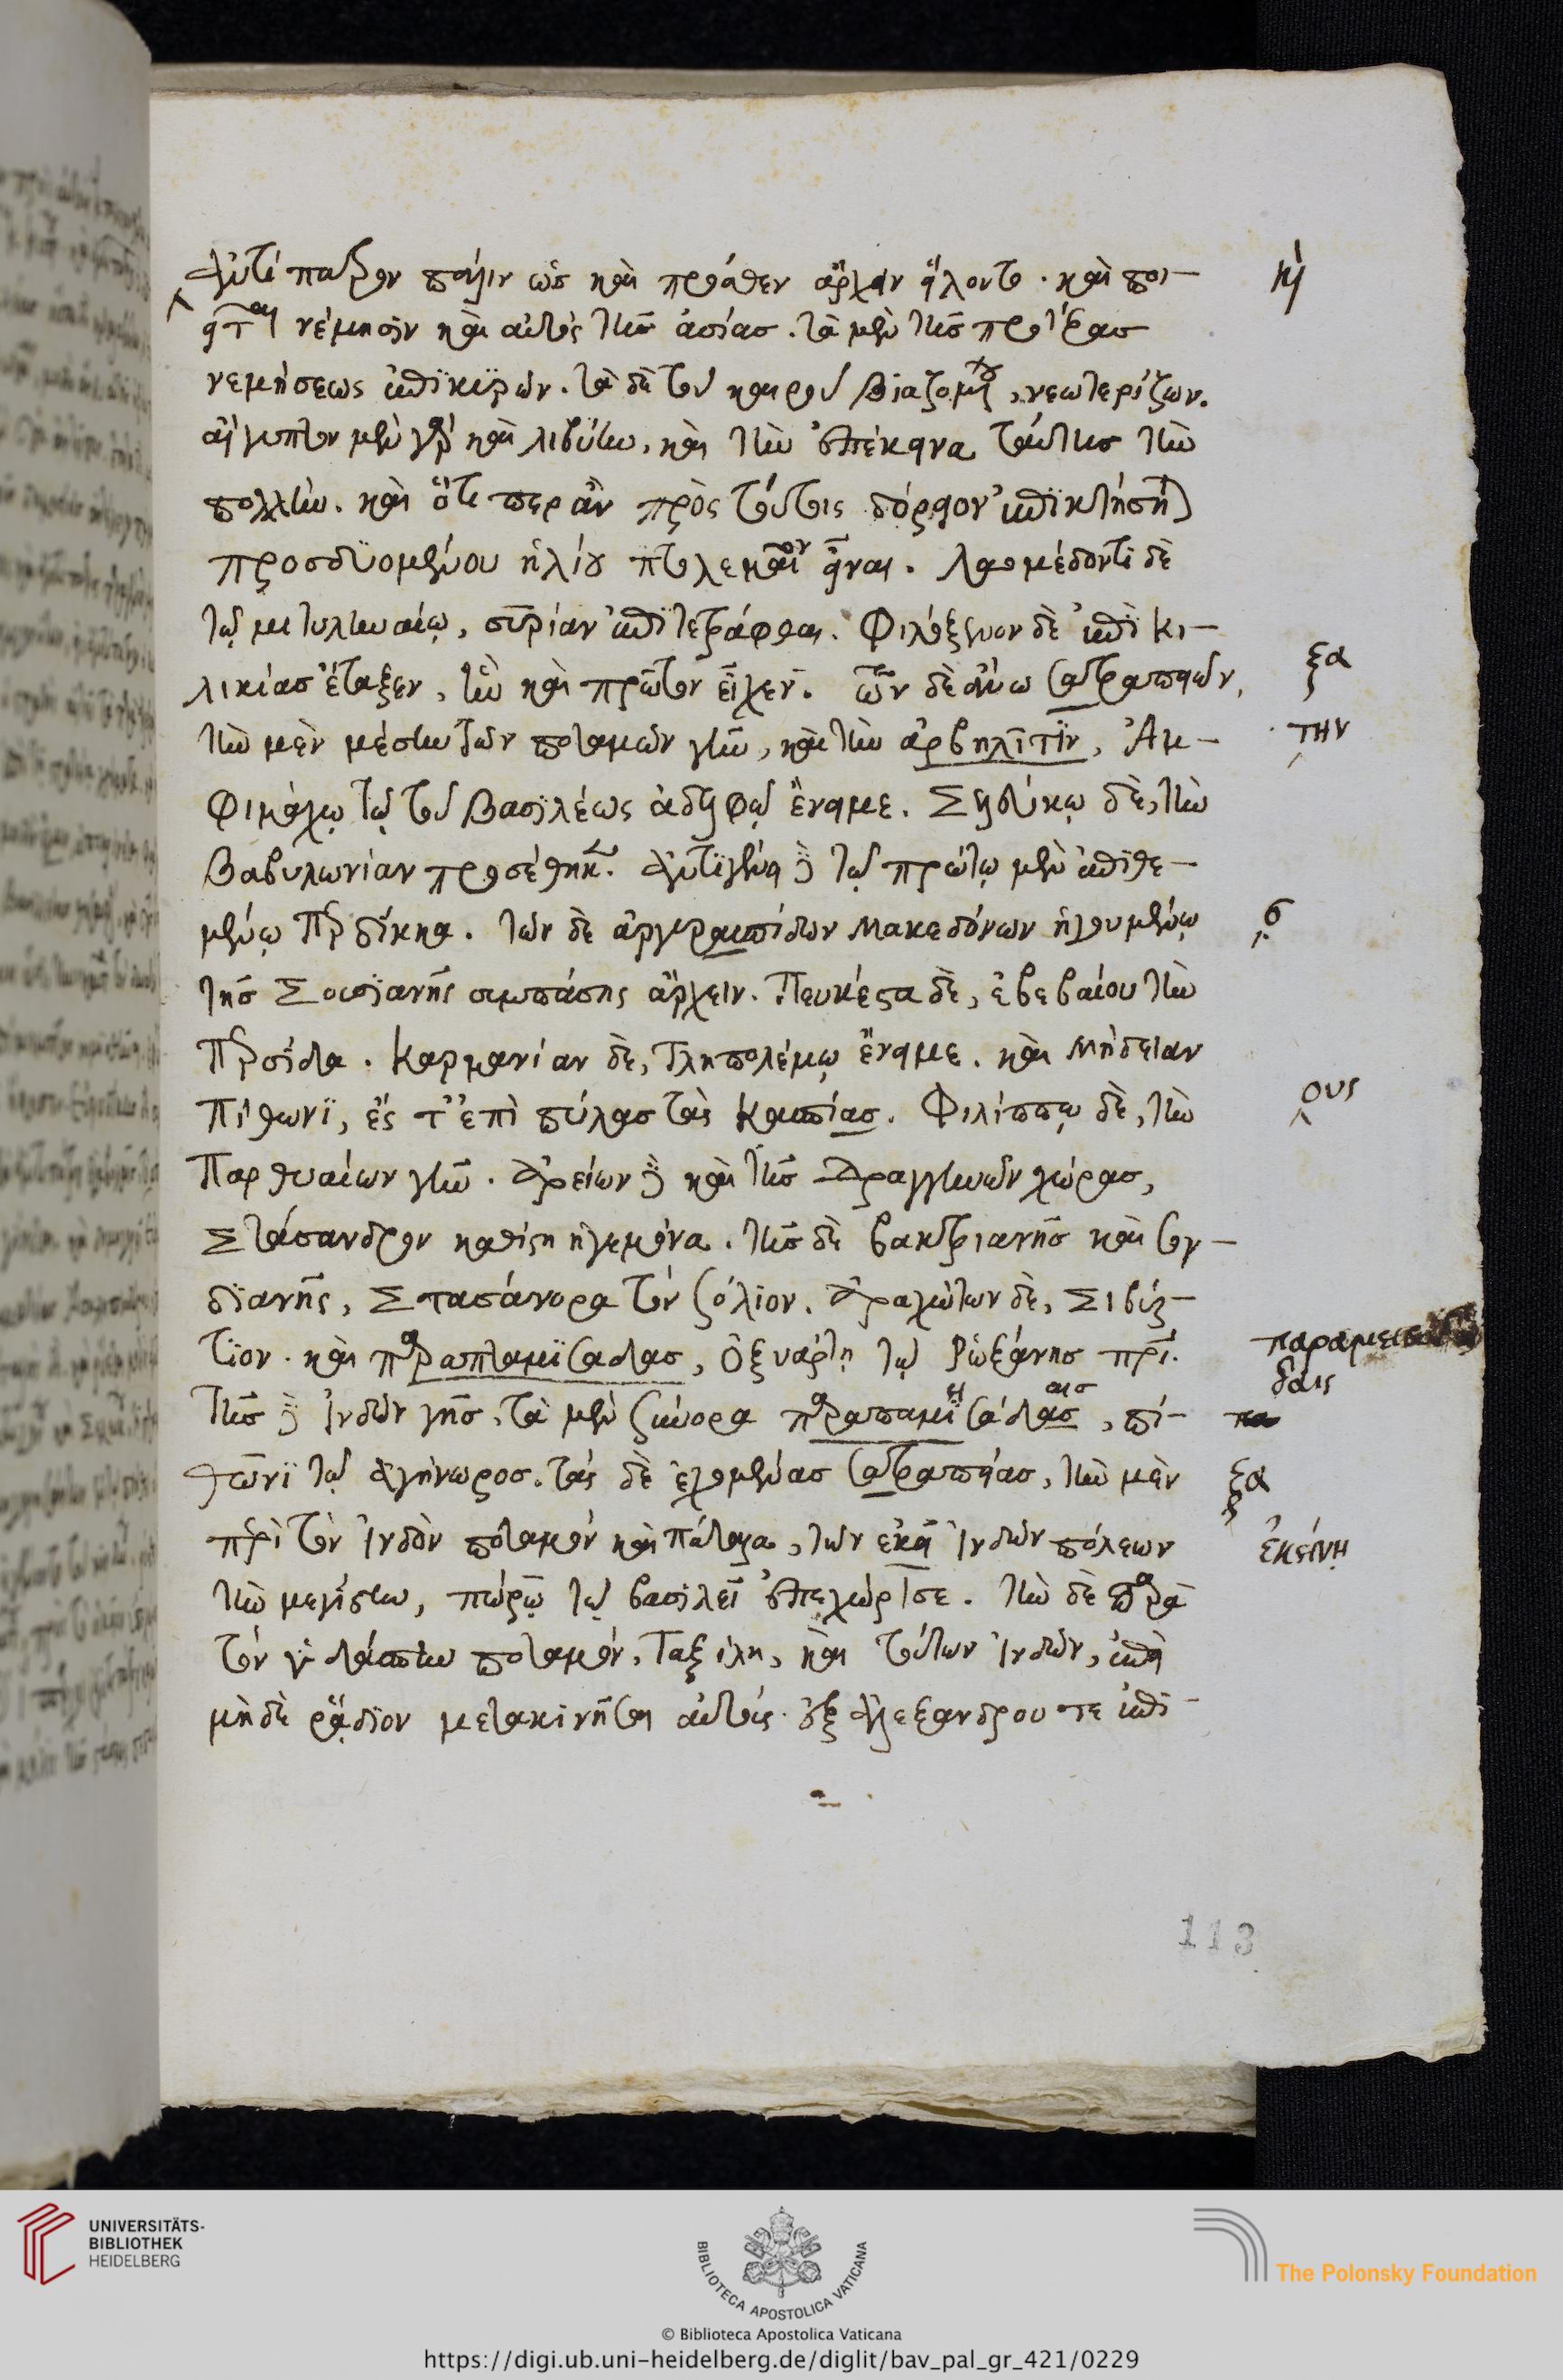 Ἀντίπατρον ποιεῖν ὡς καὶ πρόσθεν ἄρχειν εἵλοντο. καὶ ποι-
εῖται νέμησιν καὶ αὐτὸς τῆς ἀσίας. τὰ μὲν τῆς προτέρας
νεμήσεως ἐπϊκυρῶν. τὰ δὲ τοῦ καιροῦ βιαζομένου, νεωτερίζων.
αἴγυπτον μὲν γὰρ καὶ λιβύην, καὶ τὴν ἐπέκεινα ταύτης τὴν
πολλὴν. καὶ ὅτι περ ἂν πρὸς τούτοις δόρϊον ἐπϊκτήσηται
προσδϋομένου ἡλίου πτολεμαίου εἶναι. Λαομέδοντϊ δὲ
τῷ μιτυληναίῳ, συρίαν ἐπϊτετράφθαι. Φιλόξενον δὲ ἐπὶ κι-
λικίας ἔταξεν, ἣν καὶ πρῶτον εἶχεν. τῶν δὲ ἄνω σατραπειῶν,
ξα
τὴν μὲν μέσην τῶν ποταμῶν γῆν, καὶ τὴν ἀρβηλῖτιν, Ἀμ-
την
φιμάχῳ τῷ τοῦ βασϊλέως ἀδελφῷ ἔνειμε. Σελεύκῳ δὲ, τὴν
βαβυλωνίαν προσέθηκεν. ἀντϊγένει δὲ τῷ πρώτῳ μὲν ἐπϊθε-
μένῳ Περδίκκα. τῶν δὲ ἀργυραπίδων μακεδόνων ἡγουμένῳ
σ
τῆς Σουσϊανῆς συμπάσης ἄρχειν. Πευκέστα δὲ, ἐβεβαίου τὴν
Περσίδα. Καρμανίαν δὲ, Τληπολέμῳ ἔνειμε. καὶ Μήδειαν
Πίθωνϊ, ἔς τ' ἐπὶ πύλας τὰς Κασπίας. Φιλίππῳ δὲ, τὴν
ους
Παρθυαίων γῆν. Ἀρείων δὲ καὶ τῆς Δραγγηνῶν χώρας,
Στάσανδρον καθίστη ἡγεμόνα. τῆς δὲ βακτριανῆς καὶ σογ-
δϊανῆς, Στασάνορα τὸν σόλϊον. Ἀραχώτων δὲ, Σιβύρ-
τϊον. καὶ παραπταμϊσαδας, Ὀξυάρτῃ τῷ Ῥωξάνης πατρί.
δαις
τῆς δὲ Ἰνδῶν γῆς, τὰ μὲν ξύνορα παραπαμϊσάδας, πί-
θωνϊ τῷ Ἀγήνωρος. τὰς δὲ ἐχομένας σατραπείας, τὴν μὲν
ξα
παρὰ τὸν Ἰνδὸν ποταμὸν καὶ Πάταλα, τῶν ἐκεῖ Ἰνδῶν πόλεων
ἐκείνῃ
τὴν μεγίστην, πώρῳ τῷ βασιλεῖ ἐπεχώρϊσε. τὴν δὲ παρὰ
τὸν ὑδάσπην ποταμὸν, Ταξίλῃ, καὶ τούτων Ἰνδῶν, ἐπεὶ
μὴδὲ ῥᾴδϊον μετακινῆσαι αὐτοὺς ἐξ Ἀλεξάνδρου τε ἐπϊ-
113
UNIVERSITÄTS-
BIBLIOTHEK
HEIDELBERG
BIBLIOTECA APOSTOLICA VATICANA
The Polonsky Foundation
© Biblioteca Apostolica Vaticana
https://digi.ub.uni-heidelberg.de/diglit/bav_pal_gr_421/0229